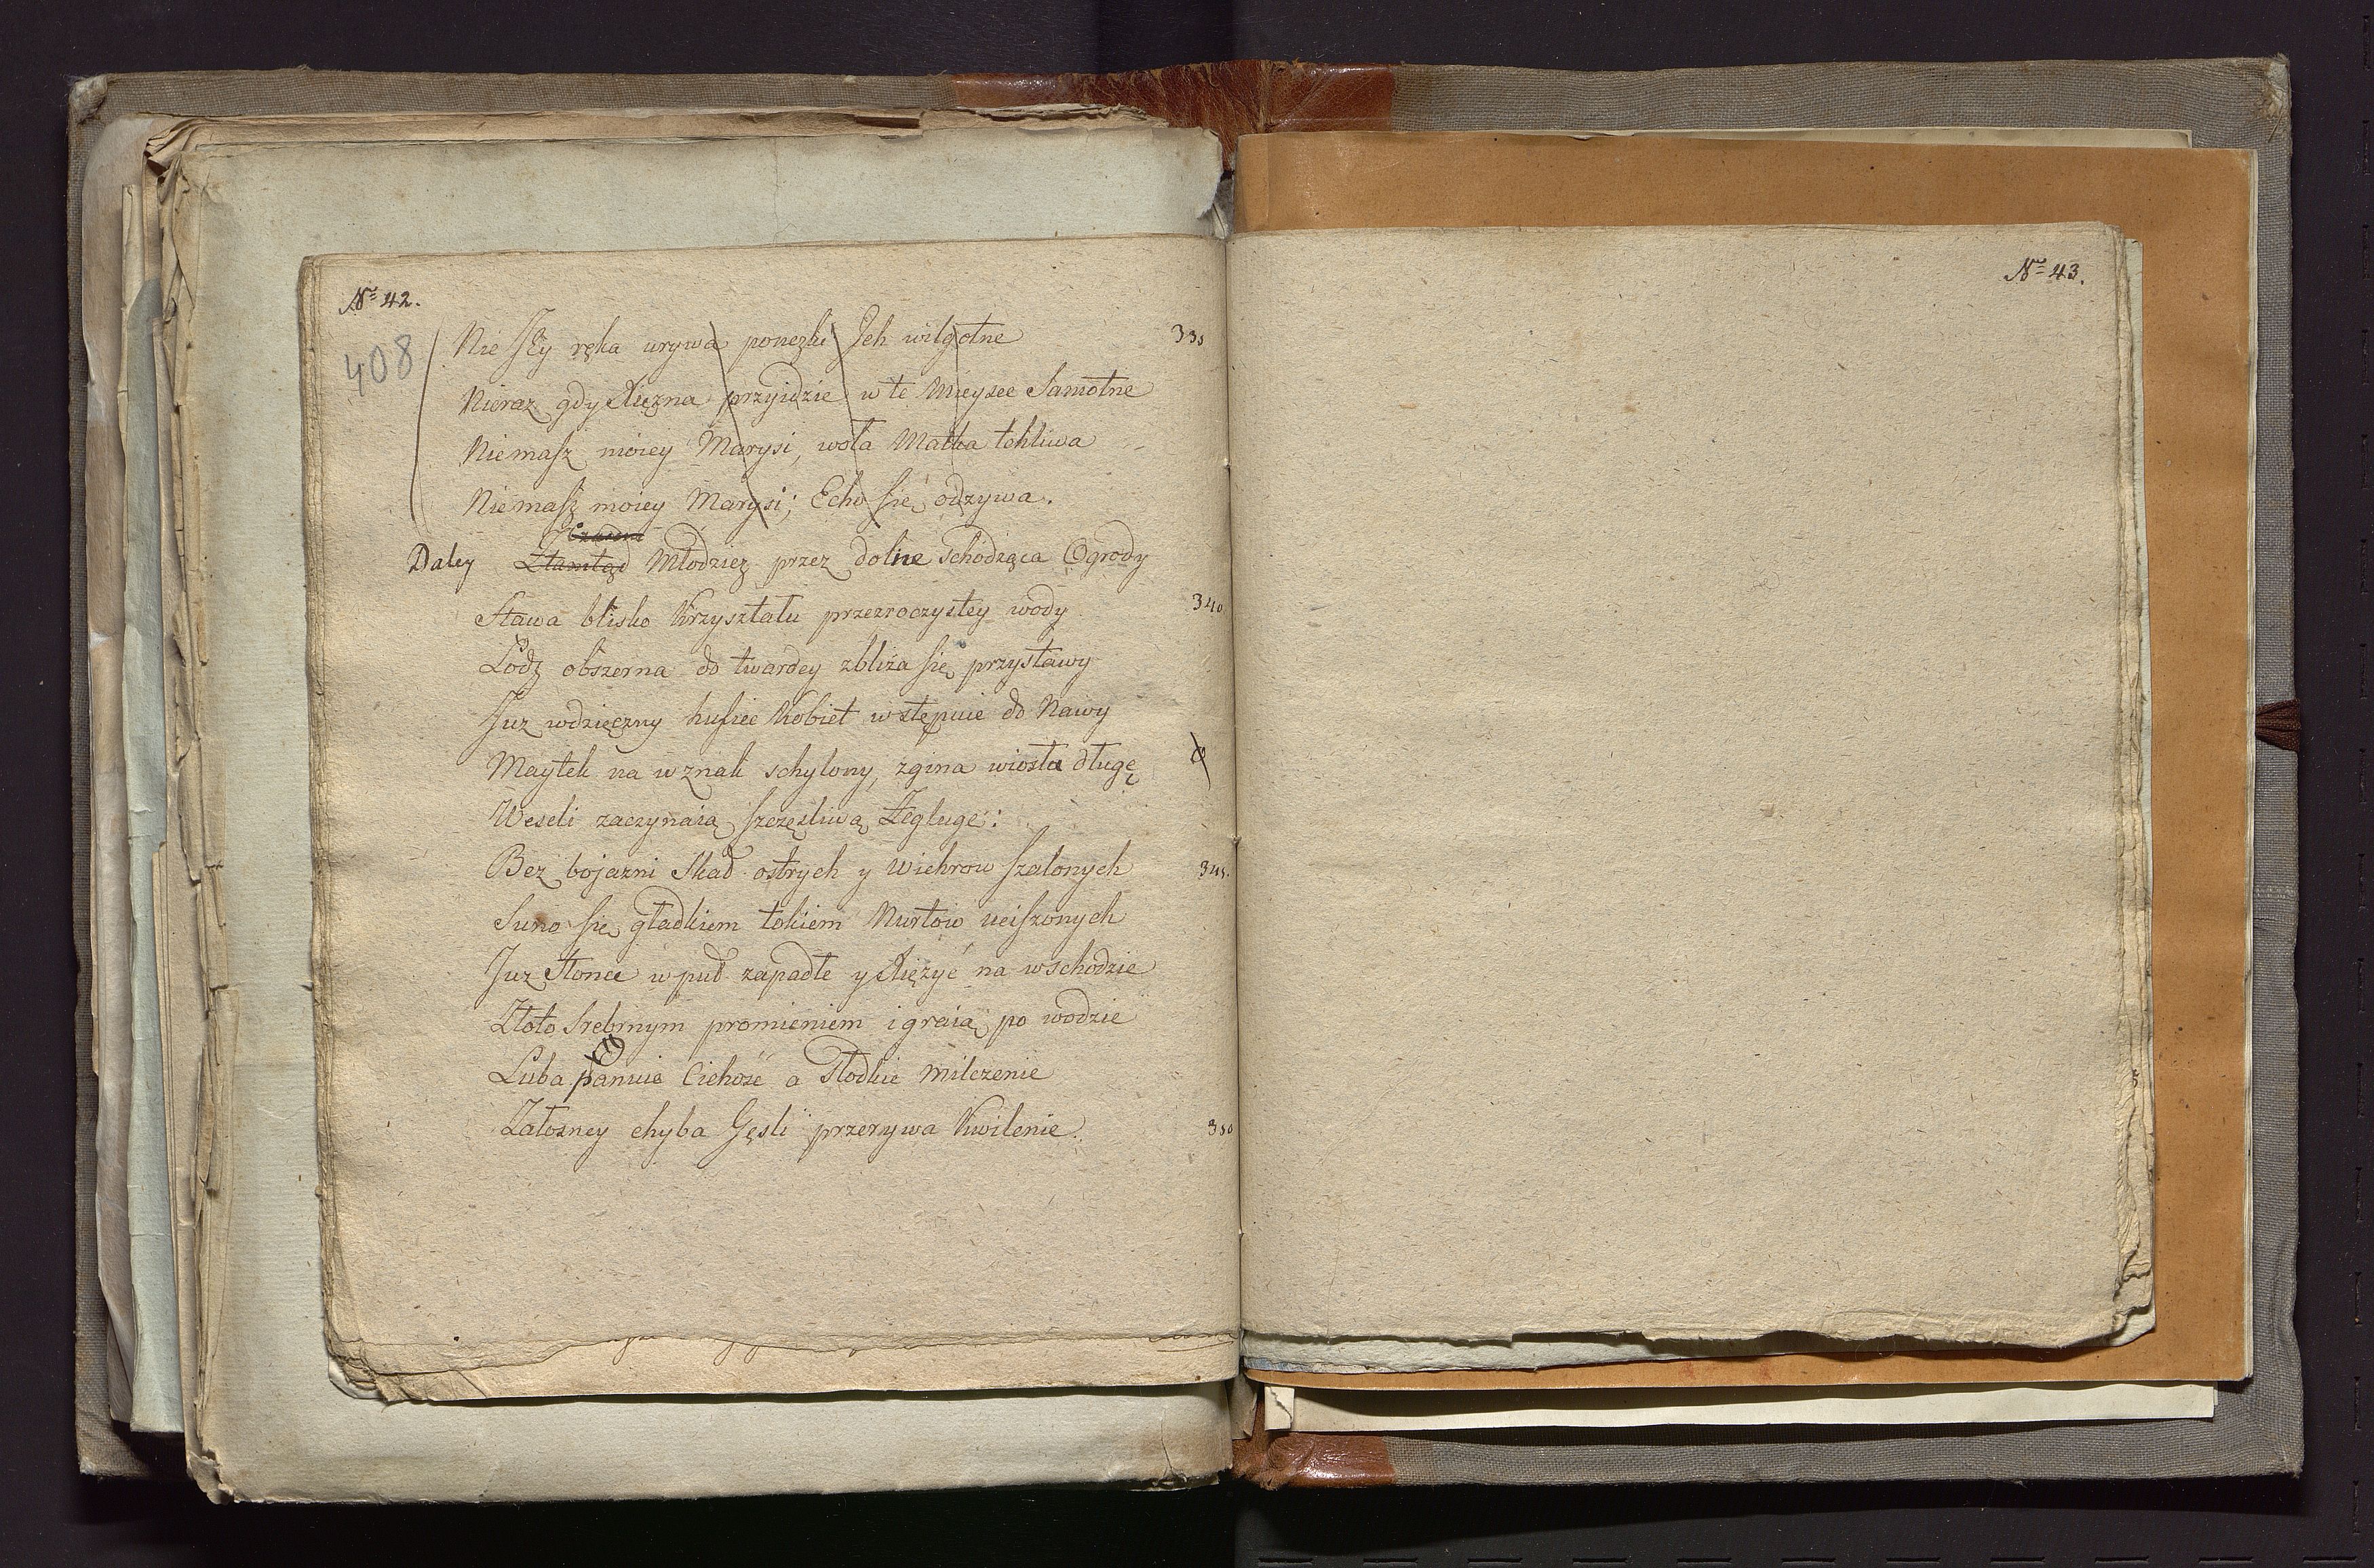 No 42.
408
Nie Jey ręka urywa pączki Jch wilgotne 335
Nieraz gdy Xięzna przyidzie w te Mieysce Samotne
Niemasz moiey Marysi, woła Matka tchliwa
Niemasz moiey Marysi; Echo się odzywa.
Czasem
Daley Ztamtąd Młodziez przez dolne schodząca Ogrody
Stawa blisko Krzyształu przezroczystey wody 340
Lodz obszerna do twardey zbliża się przystawy
Juz wdzięczny hufiec Kobiet wstępuie do Nawy
Maytek na wznak schylony, zgina wiosła długę
Weseli zaczynaią szczęsliwą Zeglugę:
Bez bojazni Skał ostrych y Wichrow szalonych 345.
Suno się gładkiem tokiem Nurtow uciszonych
Juz Słonce wpuł zapadłe y Xięzyć na wschodzie
Złoto Srebrnym promieniem igraią po wodzie
Luba panuie Cichość a Słodkie milczenie
Załosney chyba Gęsli przerywa Kwilenie. 350
No 43.